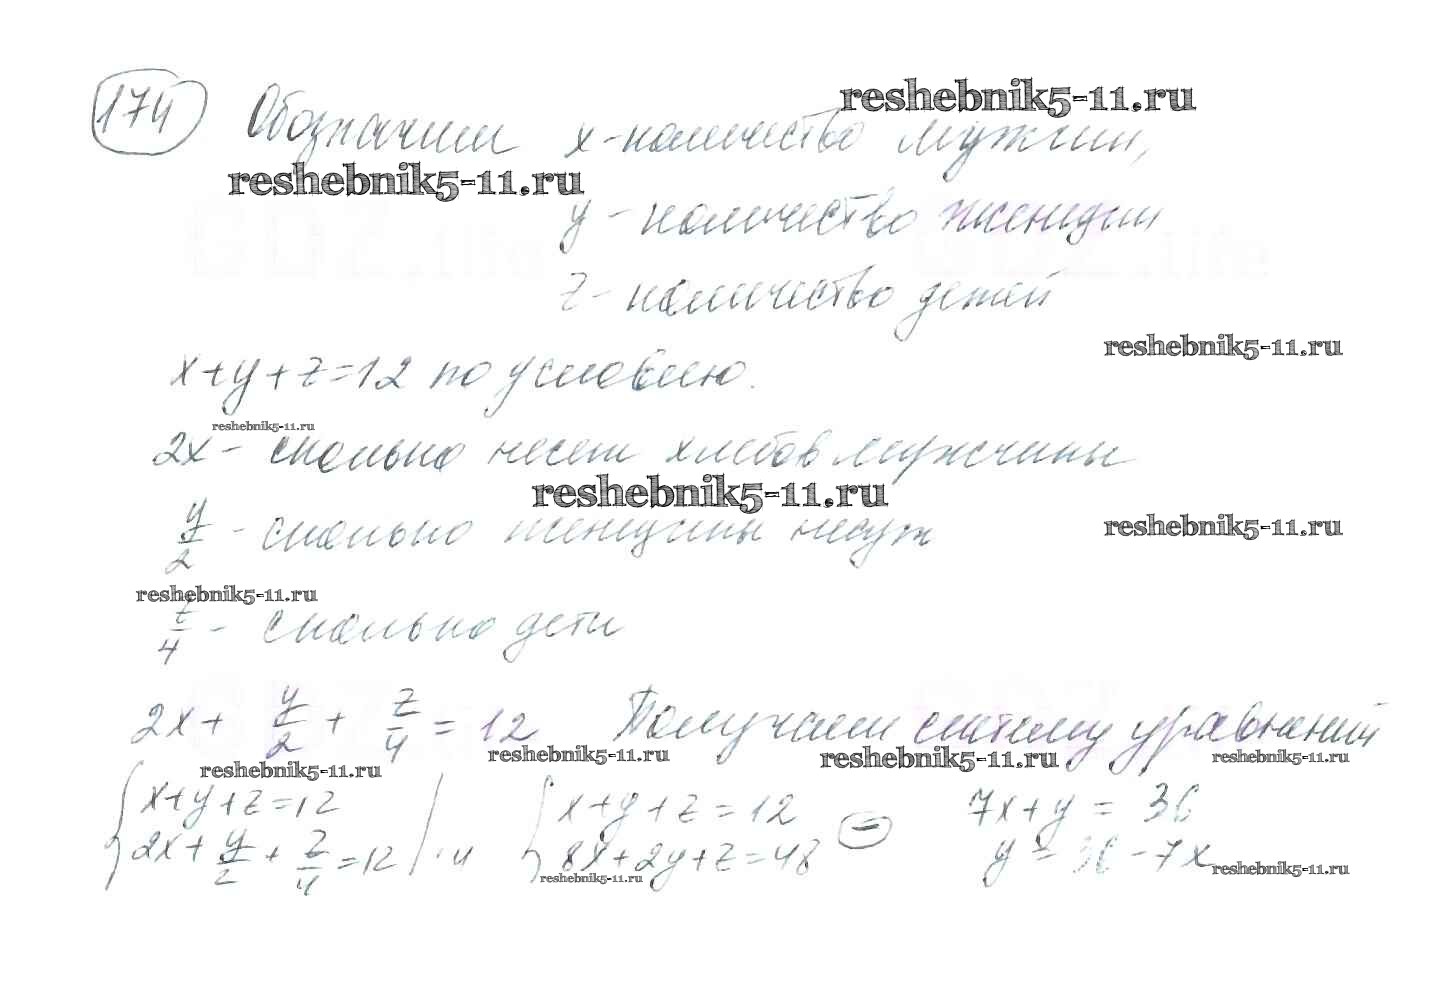 174 Обозначим x - количество мужчин,
reshebnik5-11.ru
reshebnik5-11.ru
y - количество женщин
GDZ.life GDZ.life
z - количество детей
reshebnik5-11.ru
x+y+z=12 по условию.
reshebnik5-11.ru
2x - сколько несет хлебов мужчины
reshebnik5-11.ru
y/2 - сколько женщины несут
reshebnik5-11.ru
reshebnik5-11.ru
z/4 - сколько дети
2x + y/2 + z/4 = 12 Получаем систему уравнений
reshebnik5-11.ru reshebnik5-11.ru reshebnik5-11.ru
reshebnik5-11.ru
{ x+y+z=12 { x+y+z=12 (-) 7x+y = 36
2x + y/2 + z/4 = 12 | ·4 8x+2y+z=48 y = 36-7x
reshebnik5-11.ru reshebnik5-11.ru